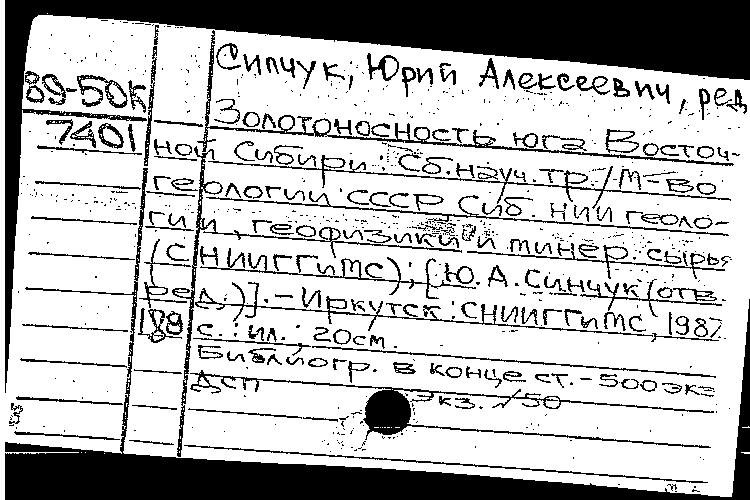 Сипчук, Юрий Алексеевич, ред
89-50К
7401
Золотоносность юга Восточ-
ной Сибири: Сб. науч. тр. / М-во
геологии СССР, Сиб. НИИ геоло-
гии, геофизики и минер. сырья
(СНИИГГиМС); [Ю. А. Синчук (отв.
ред.)]. - Иркутск: СНИИГГиМС, 1987.
189 с.: ил.; 20см.
Библиогр. в конце ст. - 500 экз
ДСП
Экз. 150